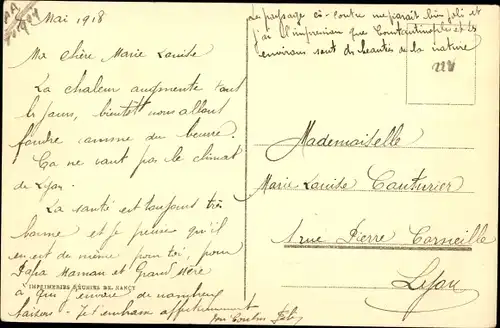 Mai 1918
Ma chère Marie Louise
La chaleur augmente tout
les jours, bientôt nous allons
fondre comme du beurre.
Ça ne vaut pas le climat
de Lyon.
La santé est toujours très
bonne et je pense qu'il
en est de même pour toi, pour
Papa Maman et Grand Mère
IMPRIMERIES RÉUNIES DE NANCY
à qui envoie de nombreux
baisers. Je t'embrasse affectueusement
ton
Le paysage ci-contre me parait bien joli et
j'ai l'impression que Constantinople et les
environs sont des beautés de la nature
Mademoiselle
Marie Louise Couturier
1 rue Pierre Corneille
Lyon